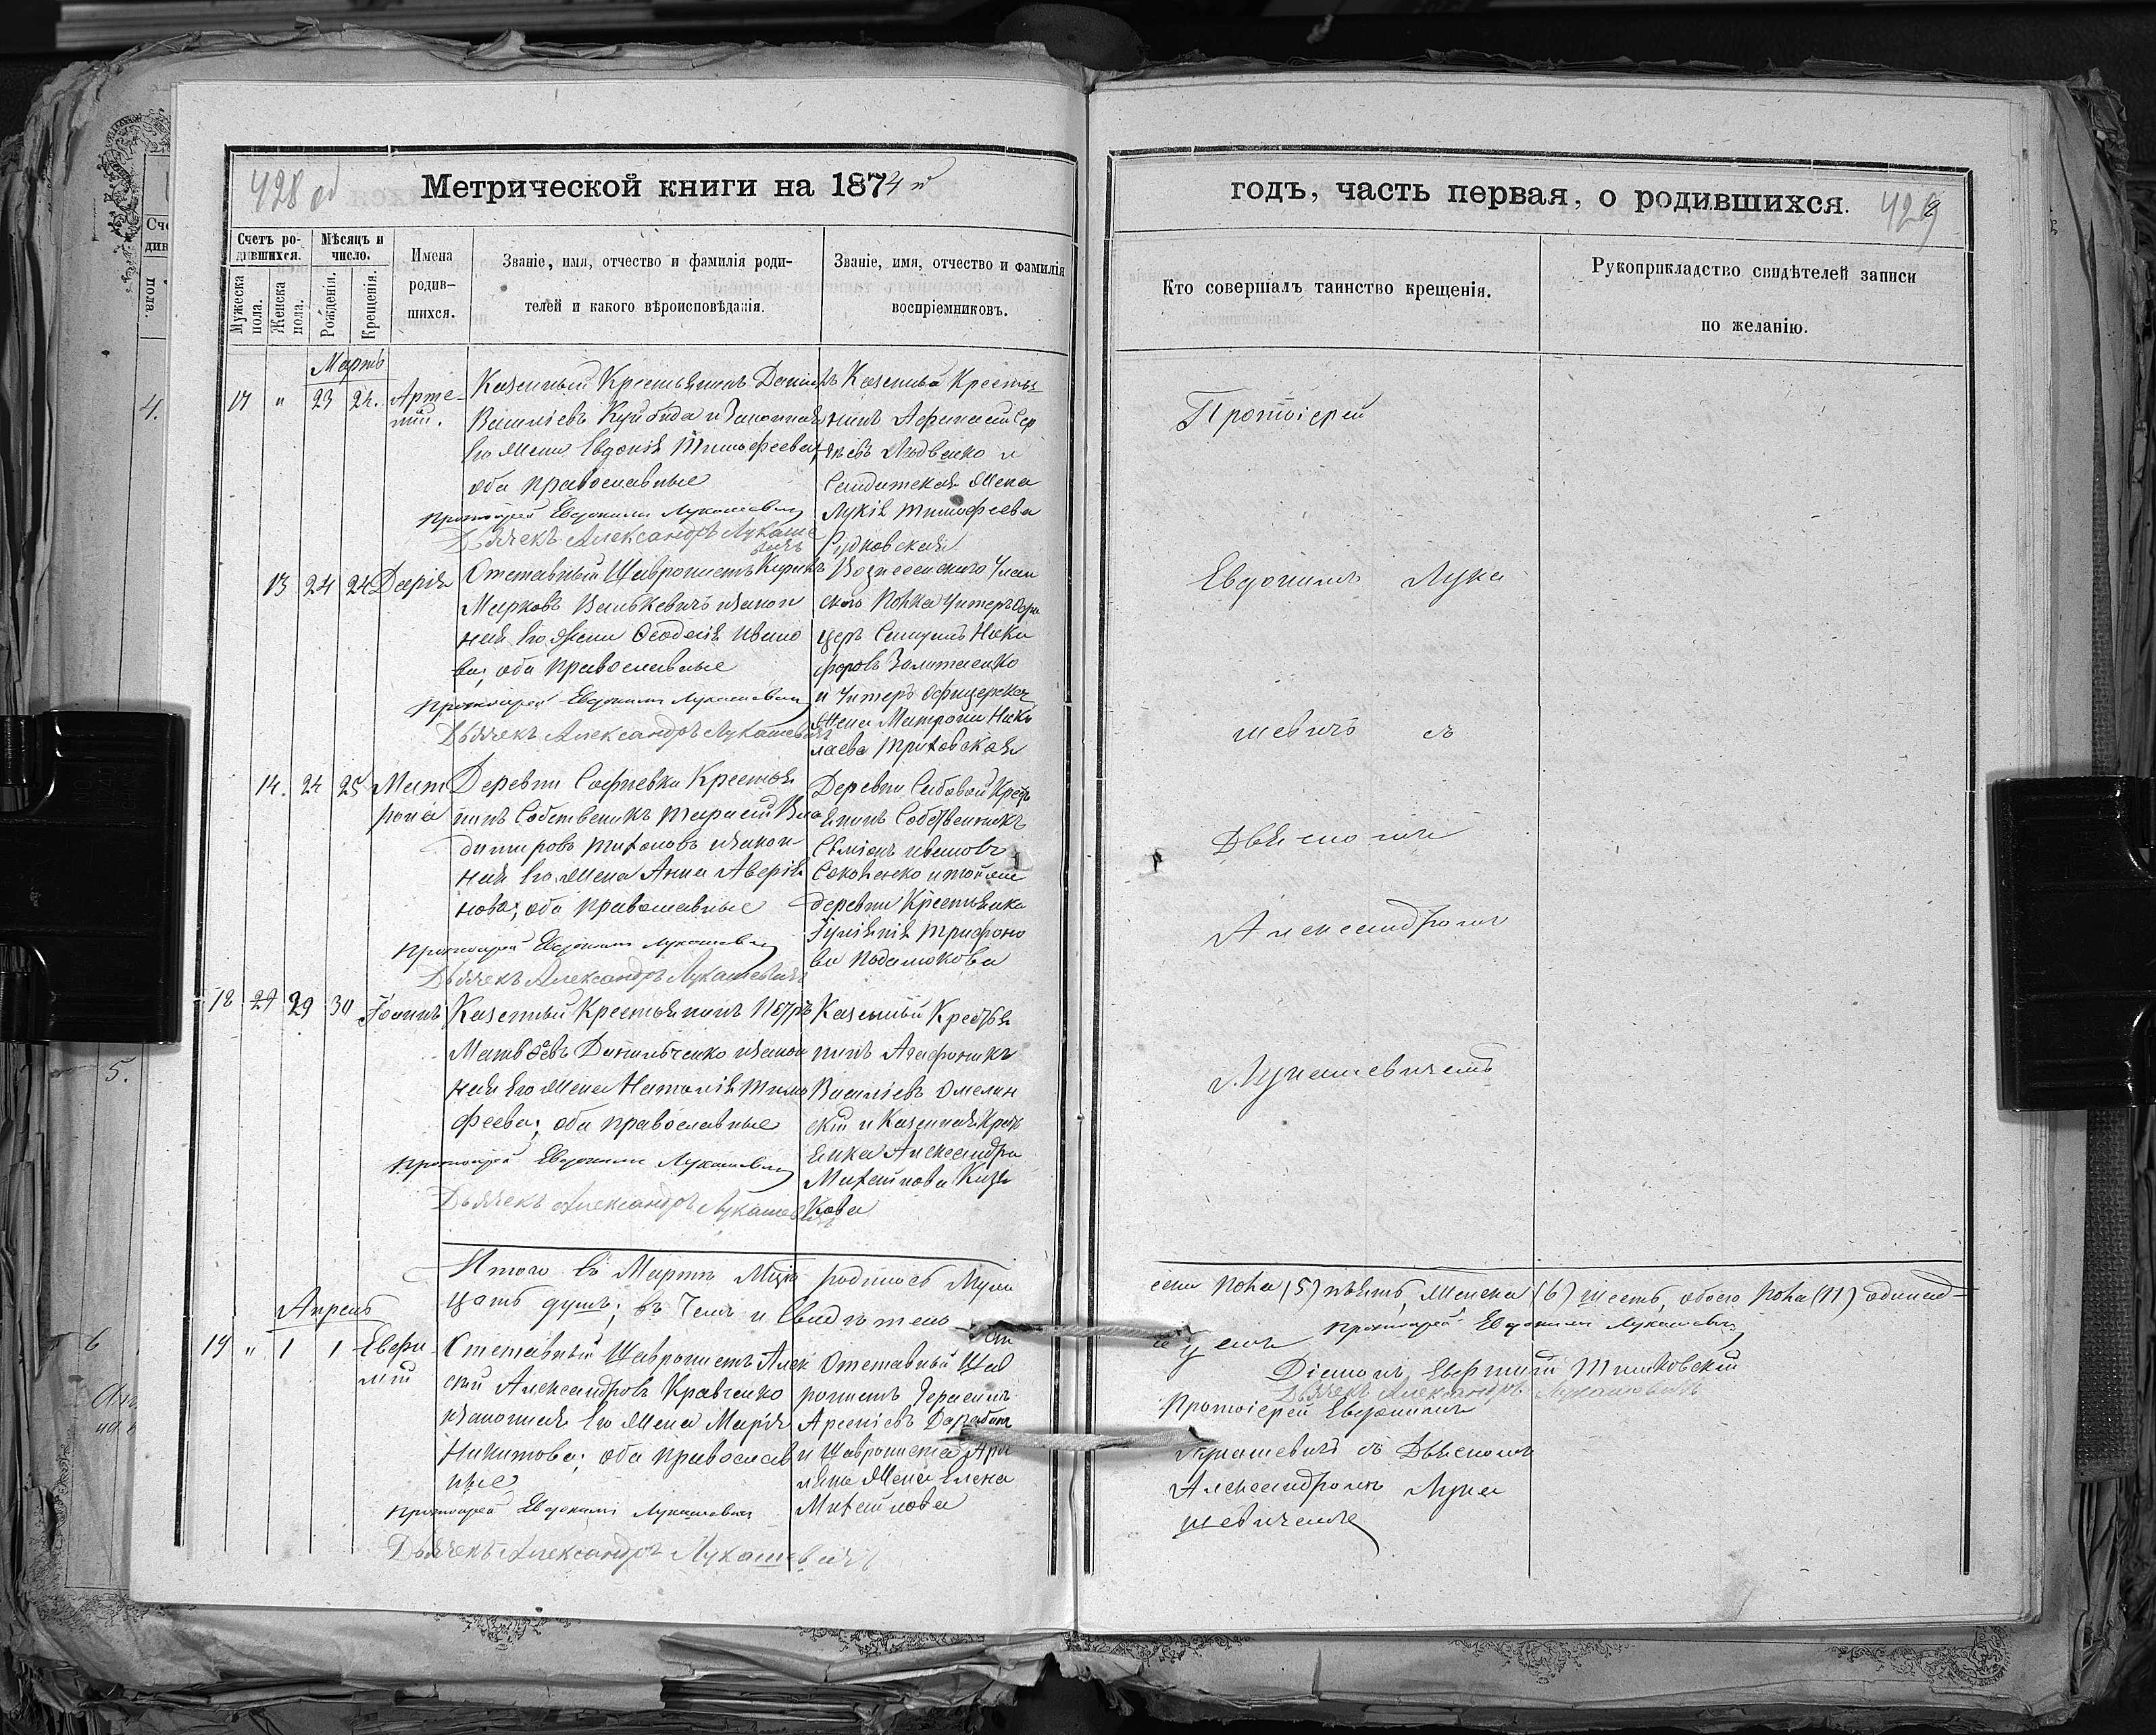 428 об
Метрической книги на 1874 й
Счетъ ро-
дившихся.
Мѣсяцъ и
число.
Мужеска
пола.
Женска
пола.
Рожденія.
Крещенія.
Имена
родив-
шихся.
Званіе, имя, отчество и фамилія роди-
телей и какого вѣроисповѣданія.
Званіе, имя, отчество и фамилія
воспріемниковъ.
Мартъ
17 " 23 24.
Арте-
мій.
Казенный Крестьянинъ Даніилъ
Василіевъ и Законная
его Жена Евдокія Тимофеева,
оба православные
Протоіерей Евдокимъ Лукашевичъ
Дьячекъ Александръ Лукаше
вичъ
Казенный Кресть-
нинъ Афанасій Сер
гѣевъ и
Солдатская Жена
Лукія Тимофеева
Рудковская
13 24 24 Дарія
Отставный Щавронистъ
Марковъ Васькевичъ изакон
ная его Жена Ѳеодосія Ивано
ва; оба православные
Протоіерей Евдокимъ Лукашевичъ
Дьячекъ Александръ Лукашевичъ
Вознесенскаго Улан
скаго Полка Унтеръ Офи
церъ Самуилъ Ники
форовъ
и Унтеръ Офицерская
Жена Матрона Нико
лаева Трихховская
14. 24 25 Мат
рона
Деревни Софиевки Крестья
нинъ Собственикъ Тарасій Вла
димировъ Тихоновъ изакон
ная его Жена Анна Аверія
нова; оба православные
Протоіерей Евдокимъ Лукашевичъ
Дьячекъ Александръ Лукашевичъ
Деревни Садовой Крест
янинъ Собственикъ
Семіонъ Ивановъ
Соковенко итойже
деревни Крестьянка
Іуліянія Трифоно
ва
18 29 30 Іоаннъ
Казенный Крестьянинъ Петръ
Матвѣевъ Данильченко изакон
ная его Жена Наталія Тимо
феева; оба православные
Протоіерей Евдокимъ Лукашевичъ
Дьячекъ Александръ Лукашевичъ
Казенный Крестья
нинъ Агафоникъ
Василіевъ Омелян
скій и Казенная Крест
янка Александра
Михайлова Козя
кова
Итого въ Мартѣ Мцѣ родилось Муж
цать душъ; въ чемъ и Свидѣтель
Апрель
19 " 1 1 Евфи
мій
Отставный Щавронистъ Алек
сѣй Александровъ Кравченко
изаконная его Жена Марія
Никитова; оба православ
ные
Протоіерей Евдокимъ Лукашевичъ
Дьячекъ Александръ Лукашевичъ
Отставный Щав
ронистъ Герасимъ
Арсеніевъ
и Щаврониста
Жена Елена
Михайлова
годъ, часть первая, о родившихся.
429
Кто совершалъ таинство крещенія.
Рукоприкладство свидѣтелей записи
по желанію.
Протоіерей
Евдокимъ Лука
шевичъ съ
Дьячкомъ
Александромъ
Лукашевичемъ
ска пола (5) пять, Женска (6) шесть, обоего пола (11) одинад-
Протоіерей Евдокимъ Лукашевичъ
Діаконъ
Дьячекъ Александръ Лукашевичъ
Протоіерей Евдокимъ
Лукашевичъ съ Дьячкомъ
Александромъ Лука
шевичемъ